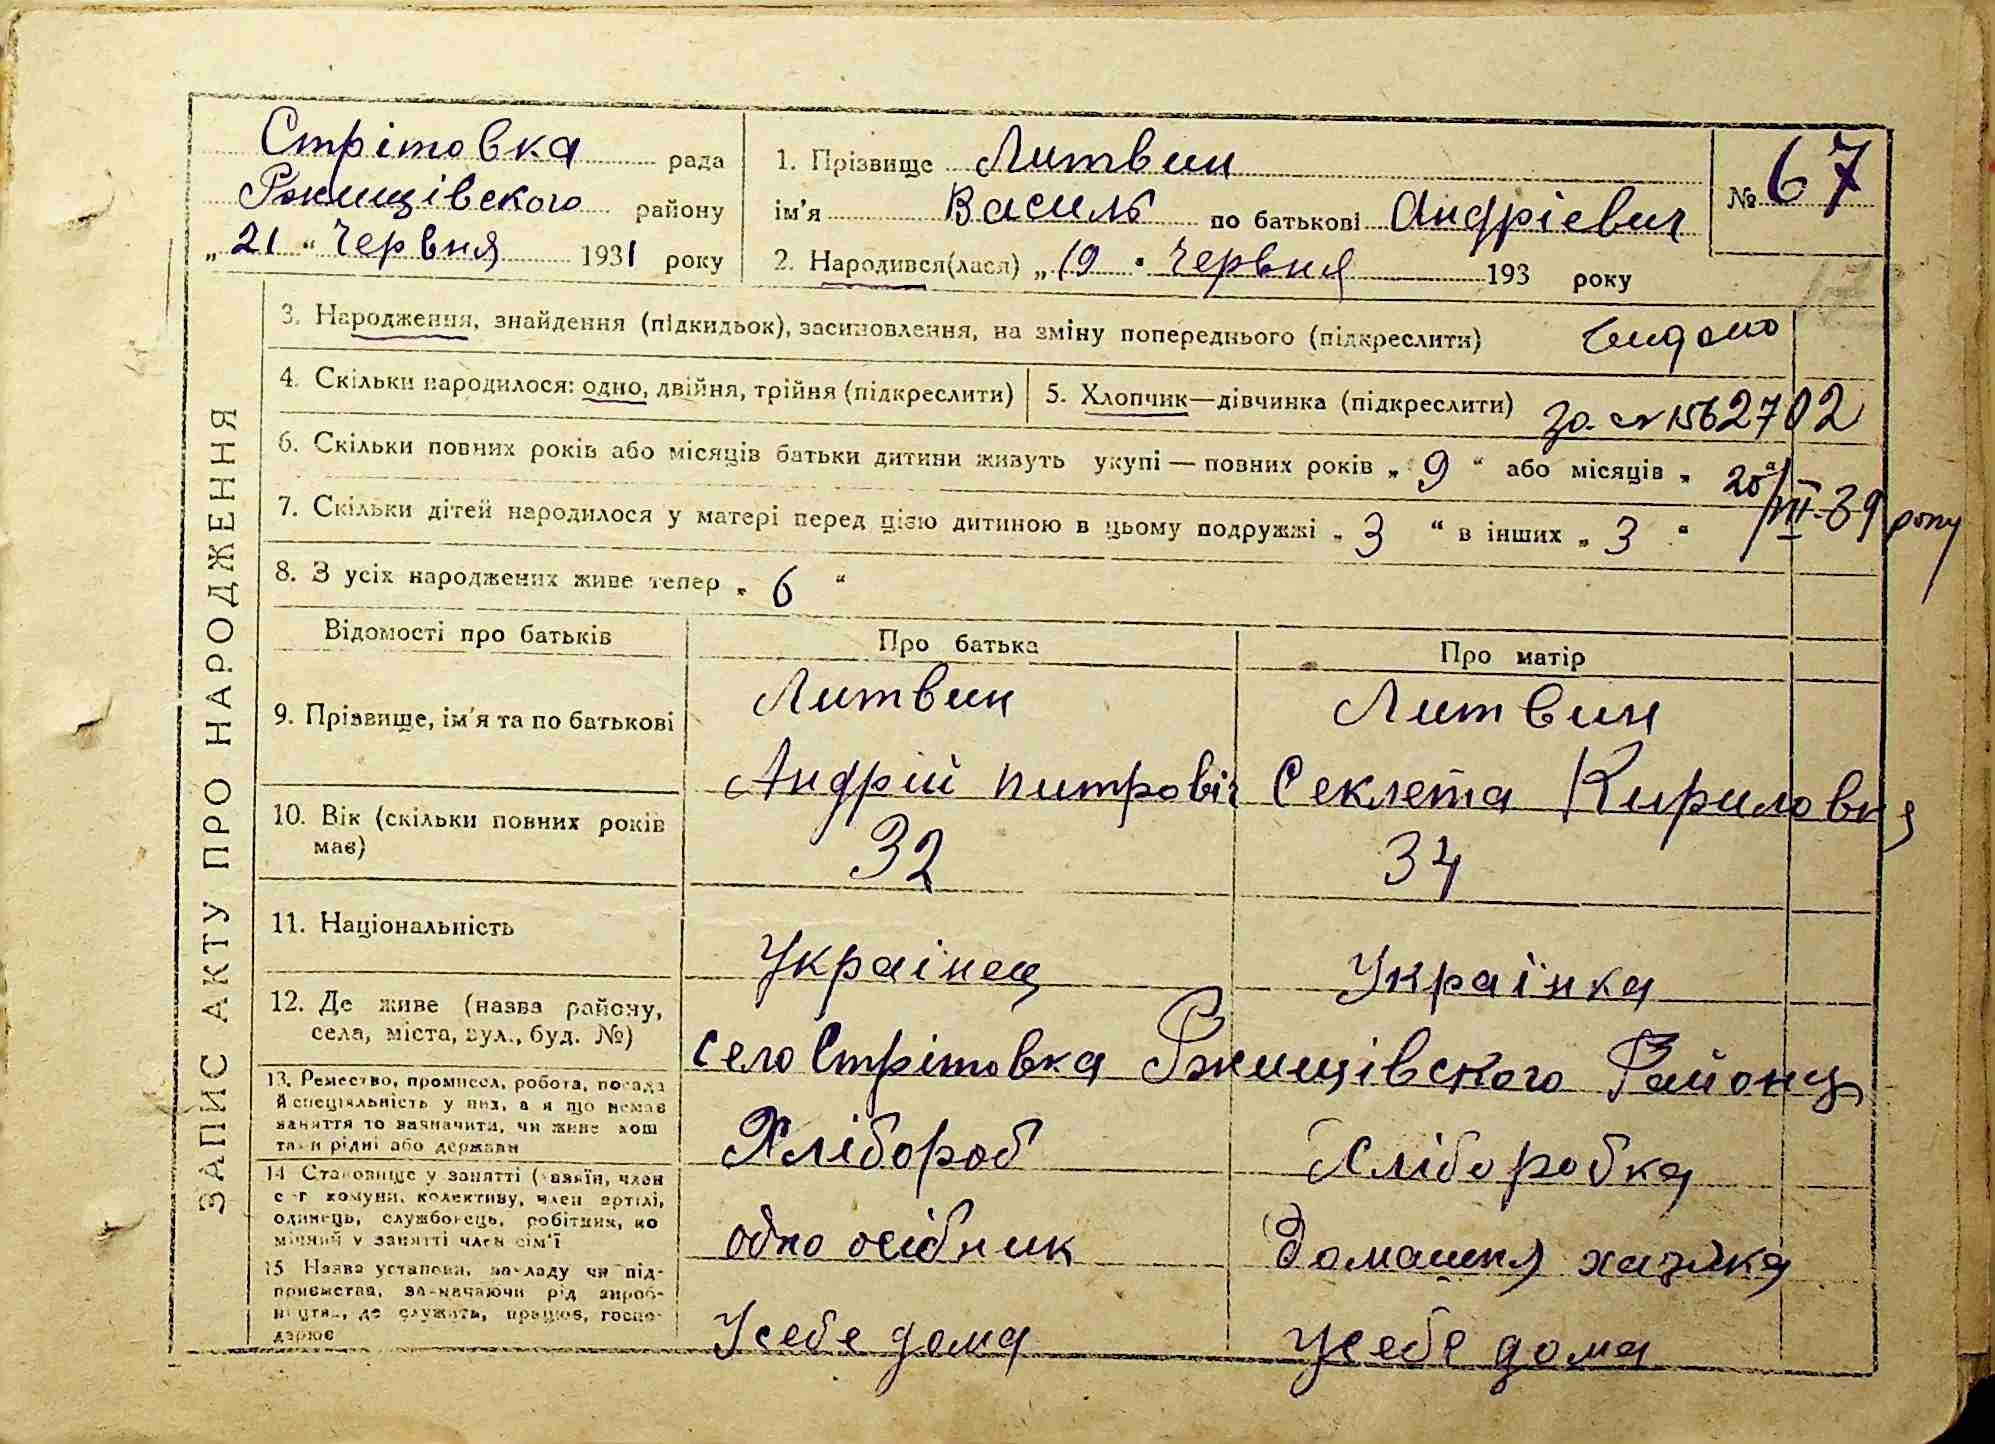 ЗАПИС АКТУ ПРО НАРОДЖЕННЯ
Стрітовка рада
Ржищівского району
„21“ Червня 1931 року
1. Прізвище Литвин
ім'я Василь по батькові Андрієвич
2. Народився(лася) „19 " червня 193 року
№ 67
3. Народження, знайдення (підкидьок), засиновлення, на зміну попереднього (підкреслити) Видано
4. Скільки народилося: одно, двійня, трійня (підкреслити)
5. Хлопчик—дівчинка (підкреслити) за № 1562702
6. Скільки повних років або місяців батьки дитини живуть укупі — повних років „ 9 “ або місяців „ 20/III-39 року
7. Скільки дітей народилося у матері перед цією дитиною в цьому подружжі „ 3 “ в інших „ 3 "
8. З усіх народжених живе тепер „ 6 “
Відомості про батьків Про батька Про матір
9. Прізвище, ім'я та по батькові
Литвин
Андрій питровіч
Литвин
Секлета Кириловня
10. Вік (скільки повних років має)
32
34
11. Національність
Украінец
Українка
12. Де живе (назва району,
села, міста, вул., буд. №)
село Стрітовка Ржищівского Району
13. Ремество, промисел, робота, посада
й спеціяльність у них, а я що немає
заняття то зазначити, чи живе кош
та и рідні або держави
Хлібороб
Хліборобка
14 Становище у занятті (хазяїн, член
с-г комуни, колективу, член артілі,
одинець, службовець, робітник, по
мічний у занятті член сім'ї
одно осібник
Домашня хазяйка
15 Назва установи, закладу чи під-
приємства, зазначаючи рід вироб-
ництва, де служить, працює, госпо-
дарює
У себе дома
у себе дома